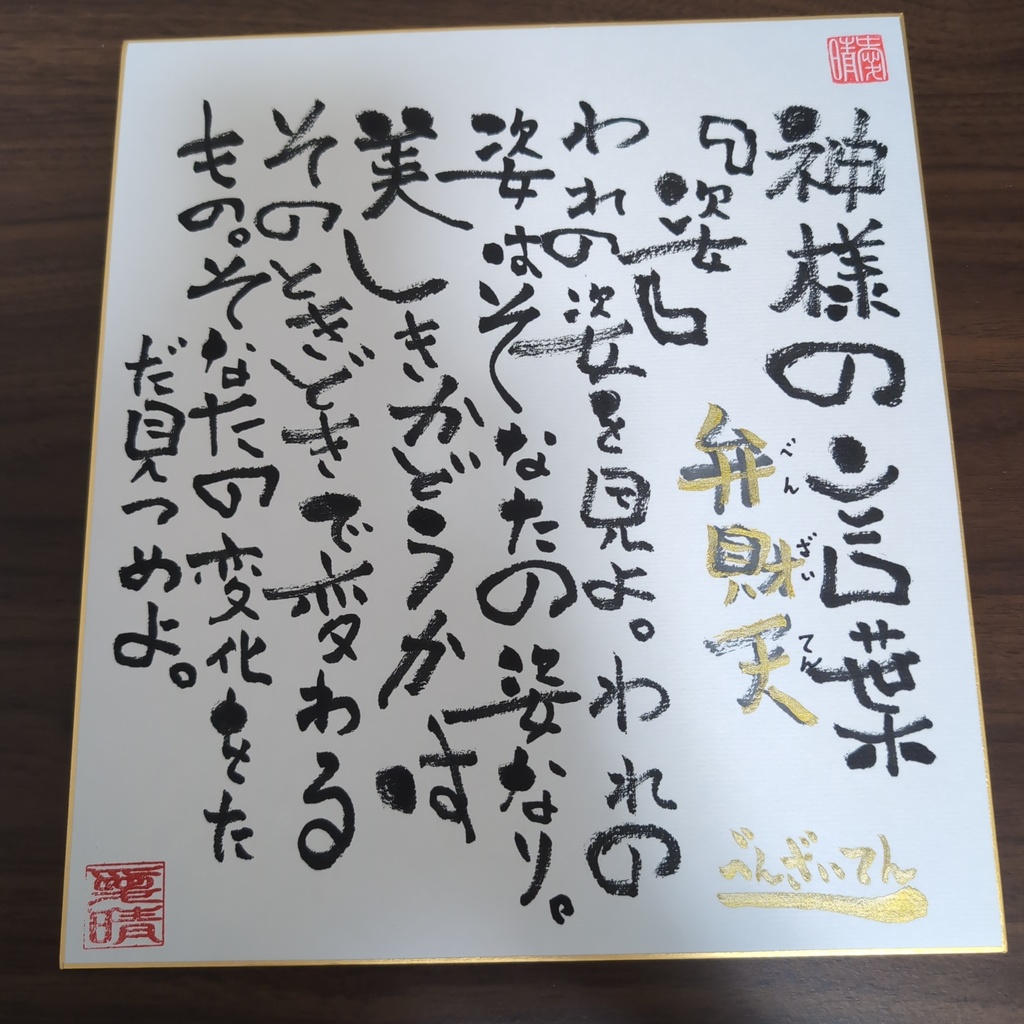 神様の言葉
『姿』
弁財天
べんざいてん
べんざいてん
われの姿を見よ。われの
姿はそなたの姿なり。
美しきかどうかは
そのときどきで変わる
もの。そなたの変化をた
だ見つめよ。